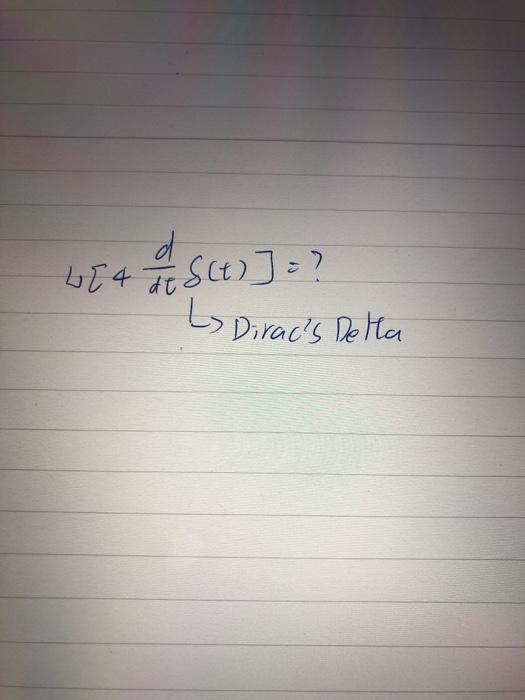 L[4 d/dt δ(t)] = ?
↳ Dirac's Delta